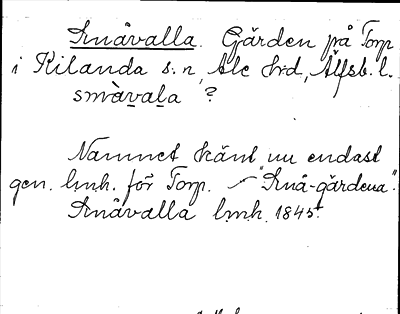 Smävalla. Gärden på Torp
i Kilanda s:n, Ale hrd, Älfsb. l.
smàvala ?
Namnet känt nu endast
gen. lmh. för Torp. ~ "Små-gärdena".
Småvalla lmh. 1845.